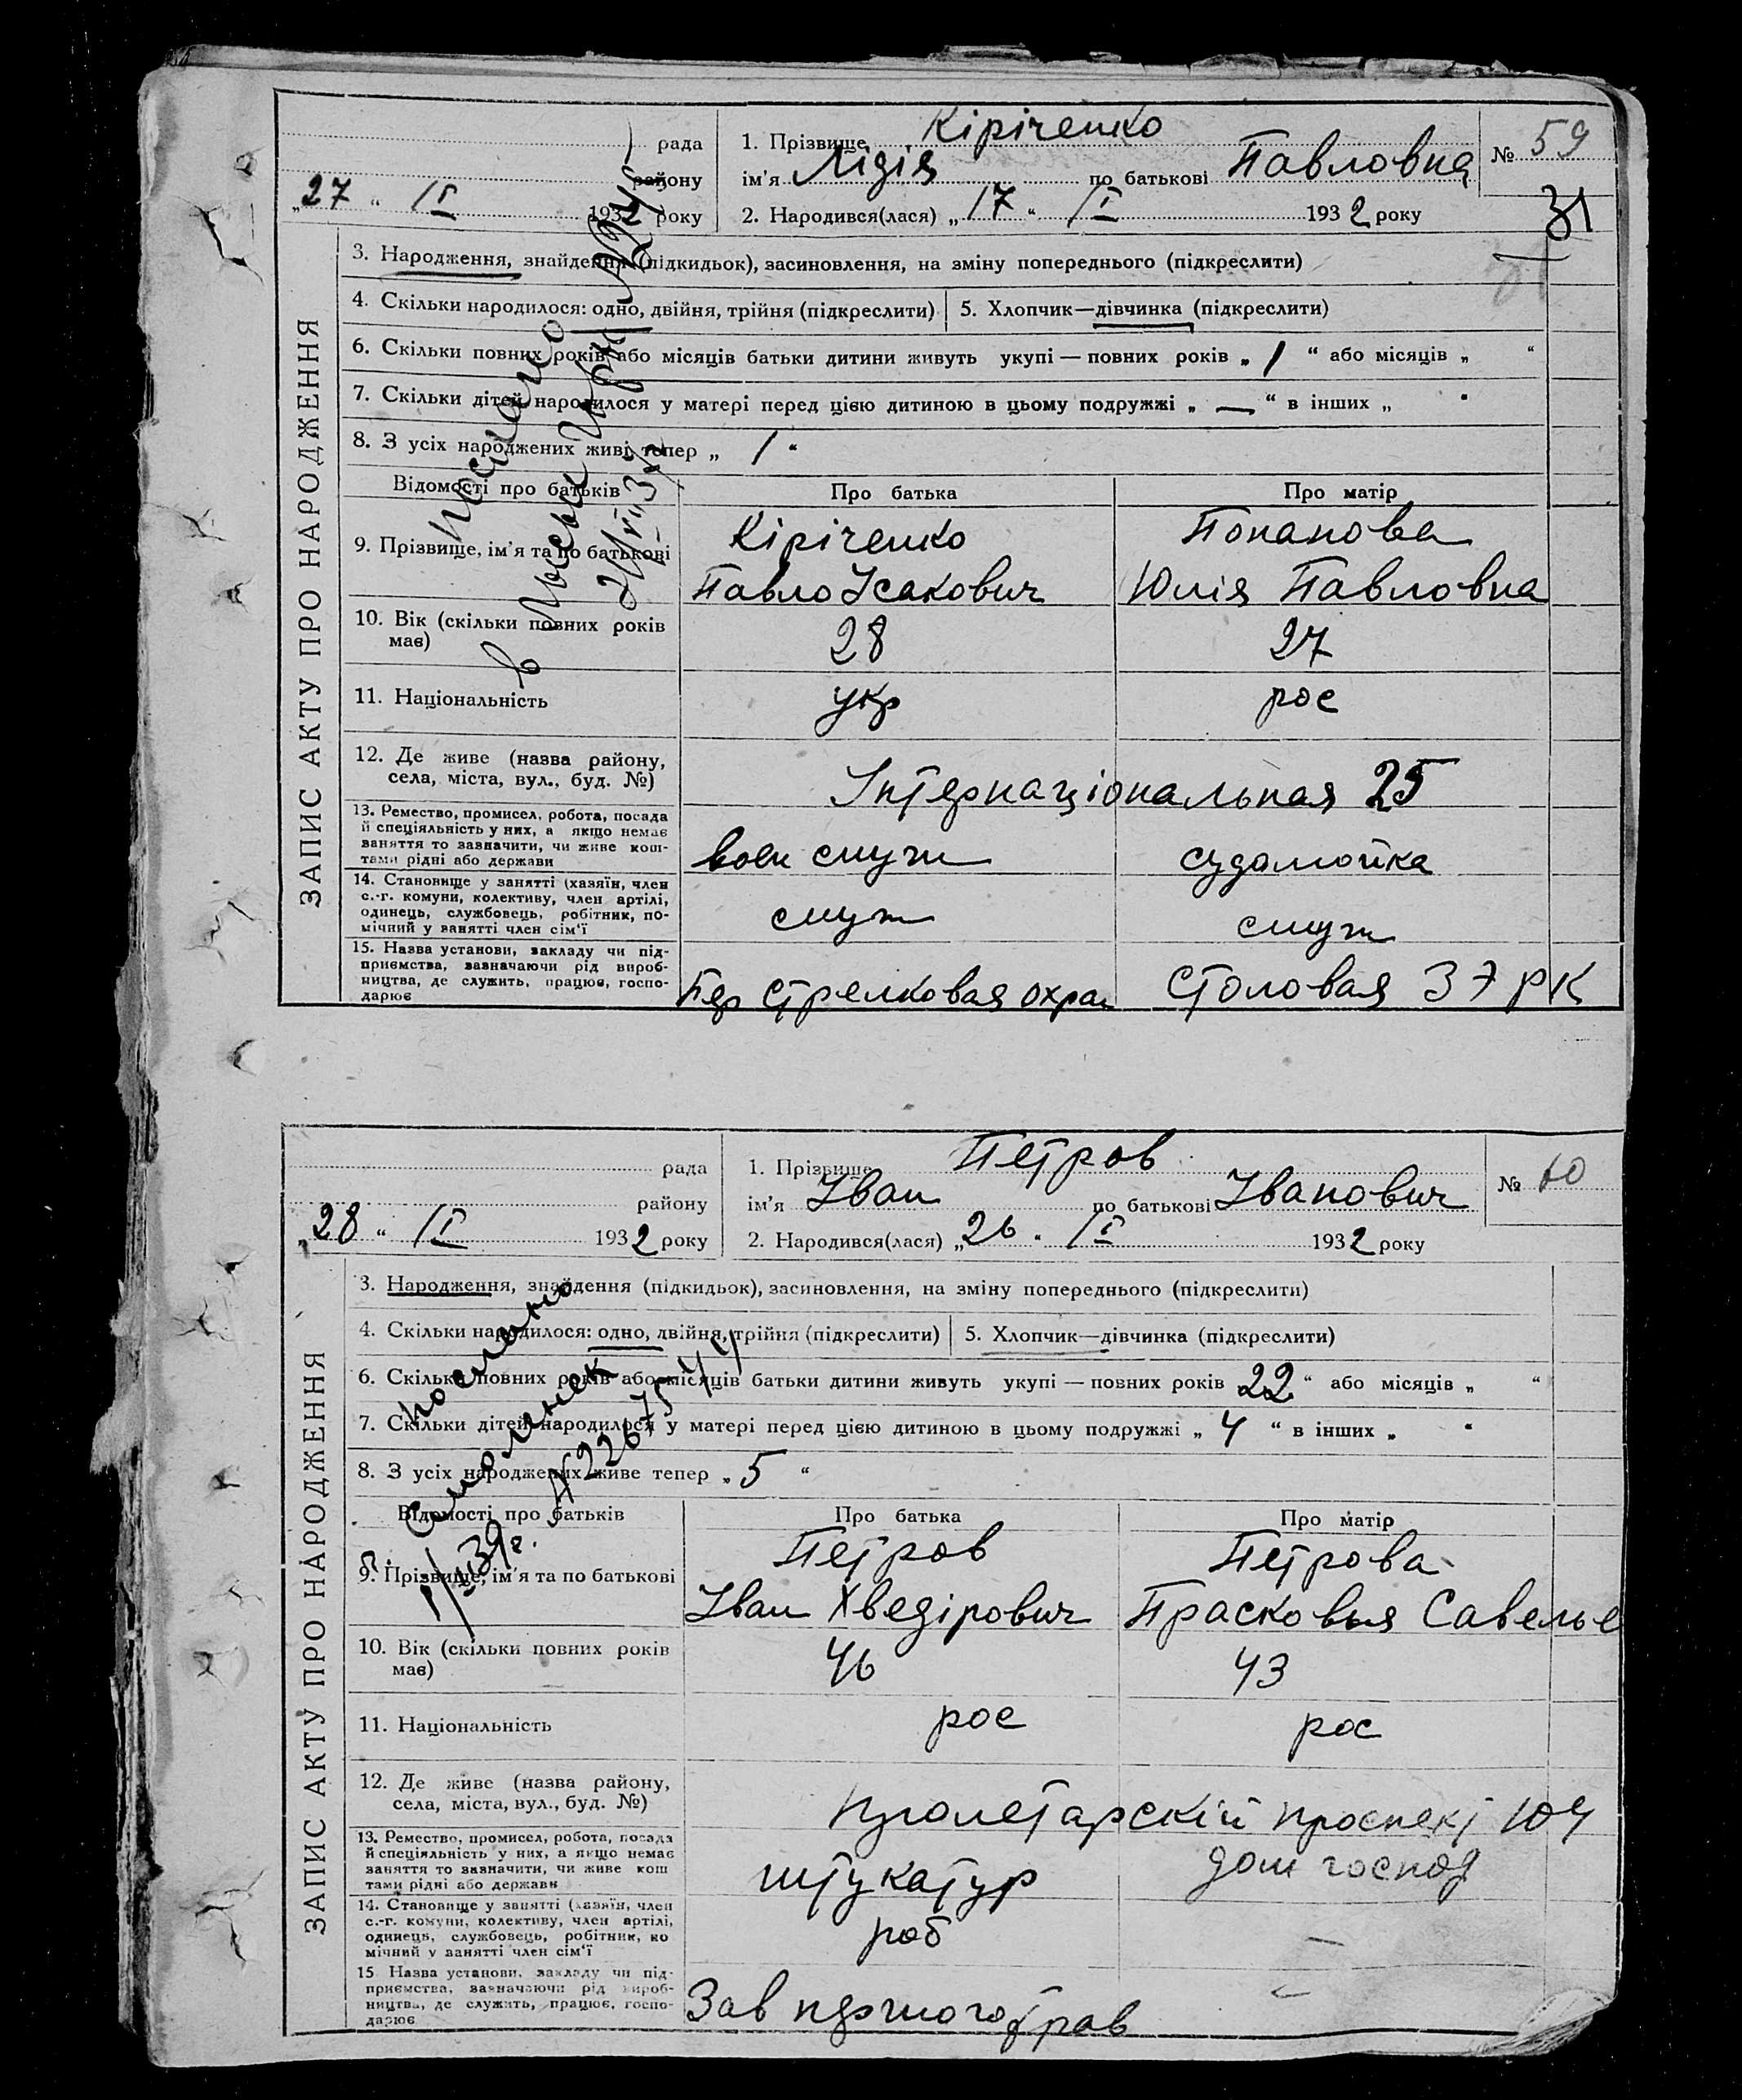 рада
району
„27 “ II 1932 року
1. Прізвище Кірiченко
ім'я Лідія по батькові Павловна
2. Народився(лася) „17“ II 1932 року
№ 59
31
ЗАПИС АКТУ ПРО НАРОДЖЕННЯ
3. Народження, знайдення (підкидьок), засиновлення, на зміну попереднього (підкреслити)
4. Скільки народилося: одно, двійня, трійня (підкреслити) 5. Хлопчик—дівчинка (підкреслити)
6. Скільки повних років або місяців батьки дитини живуть укупі — повних років „ 1 “ або місяців „ “
7. Скільки дітей народилося у матері перед цією дитиною в цьому подружжі „ — “ в інших „ “
8. З усіх народжених живі тепер „ 1 “
Відомості про батьків Про батька Про матір
9. Прізвище, ім'я та по батькові
Кірiченко
Павло Ісакович
Попанова
Юлія Павловна
10. Вік (скільки повних років
має)
28 27
11. Національність укр рос
12. Де живе (назва району,
села, міста, вул., буд. №)
Інтернаціональная 25
13. Ремество, промисел, робота, посада
й спеціяльність у них, а якщо немає
заняття то зазначити, чи живе кош-
тами рідні або держави
воен служ судомойка
14. Становище у занятті (хазяїн, член
с.-г. комуни, колективу, член артілі,
одинець, службовець, робітник, по-
мічний у занятті член сім'ї
служ служ
15. Назва установи, закладу чи під-
приємства, зазначаючи рід вироб-
ництва, де служить, працює, госпо-
дарює
стрелковая охран Столовая ЗРК
рада
району
„28 “ II 1932 року
1. Прізвище Петров
ім'я Іван по батькові Іванович
2. Народився(лася) „26 “ II 1932 року
№ 60
ЗАПИС АКТУ ПРО НАРОДЖЕННЯ
3. Народження, знайдення (підкидьок), засиновлення, на зміну попереднього (підкреслити)
4. Скільки народилося: одно, двійня, трійня (підкреслити) 5. Хлопчик—дівчинка (підкреслити)
6. Скільки повних років або місяців батьки дитини живуть укупі — повних років 22 “ або місяців „ “
7. Скільки дітей народилося у матері перед цією дитиною в цьому подружжі „ 4 “ в інших „ “
8. З усіх народжених живе тепер „ 5 “
Відомості про батьків Про батька Про матір
9. Прізвище, ім'я та по батькові
Петров
Іван Хведірович
Петрова
Прасковья Савелье
10. Вік (скільки повних років
має)
46 43
11. Національність рос рос
12. Де живе (назва району,
села, міста, вул., буд. №)
Пролетарскій проспект 104
13. Ремество, промисел, робота, посада
й спеціяльність у них, а якщо немає
заняття то зазначити, чи живе кош
тами рідні або держави
штукатур дом господ
14. Становище у занятті (хазяїн, член
с.-г. комуни, колективу, член артілі,
одинець, службовець, робітник, по
мічний у занятті член сім'ї
роб —
15 Назва установи, закладу чи під-
приємства, зазначаючи рід вироб-
ництва, де служить, працює, госпо-
дарює
Зав першого трав